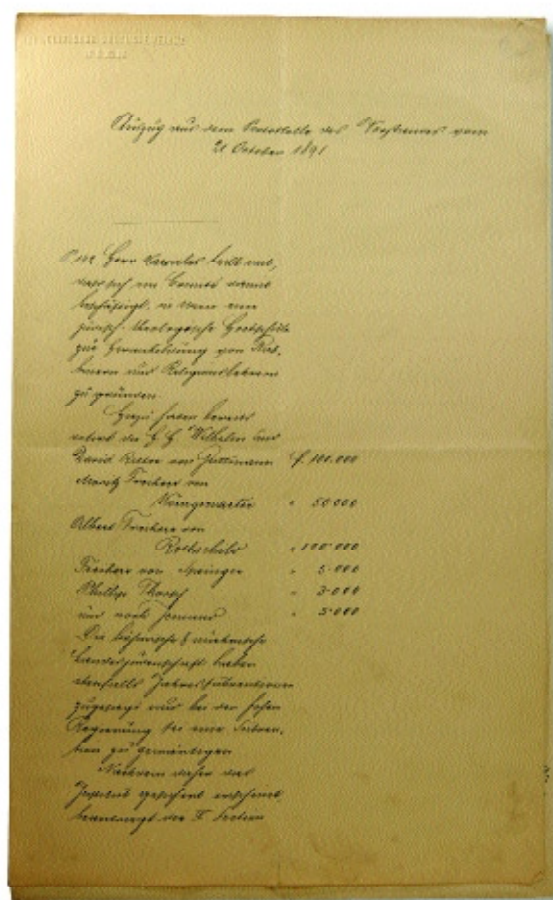 Auszug aus dem Protokolle des Vorstandes vom
21 October 1891
Herr theilt mit,
dass sich ein Comité damit
beschäftigt, in Wien eine
jüdisch-theologische Hochschule
zur Heranbildung von Rab-
binern und Religionslehrern
zu gründen.
Hiezu haben bereits
die H. H. Wilhelm und
David Ritter von Guttmann f. 100.000
Moritz Freiherr von
Königswarter " 50 000
Albert Freiherr von
Rothschild " 100 000
Freiherr von Springer " 5 000
Philipp " 3 000
und noch Jemand " 5 000
Die böhmische & mährische
Landesjudenschaft haben
ebenfalls Jahressubventionen
zugesagt und bei der hohen
Regierung sei eine Subven-
tion zu gewärtigen
Nachdem daher das
Institut gesichert erscheint
beantragt die I. Section